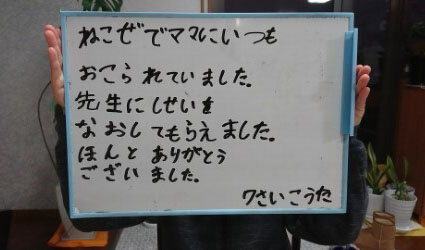 ねこぜでママにいつも
おこられていました。
先生にしせいを
なおしてもらえました。
ほんとありがとう
ございました。
7さいこうた